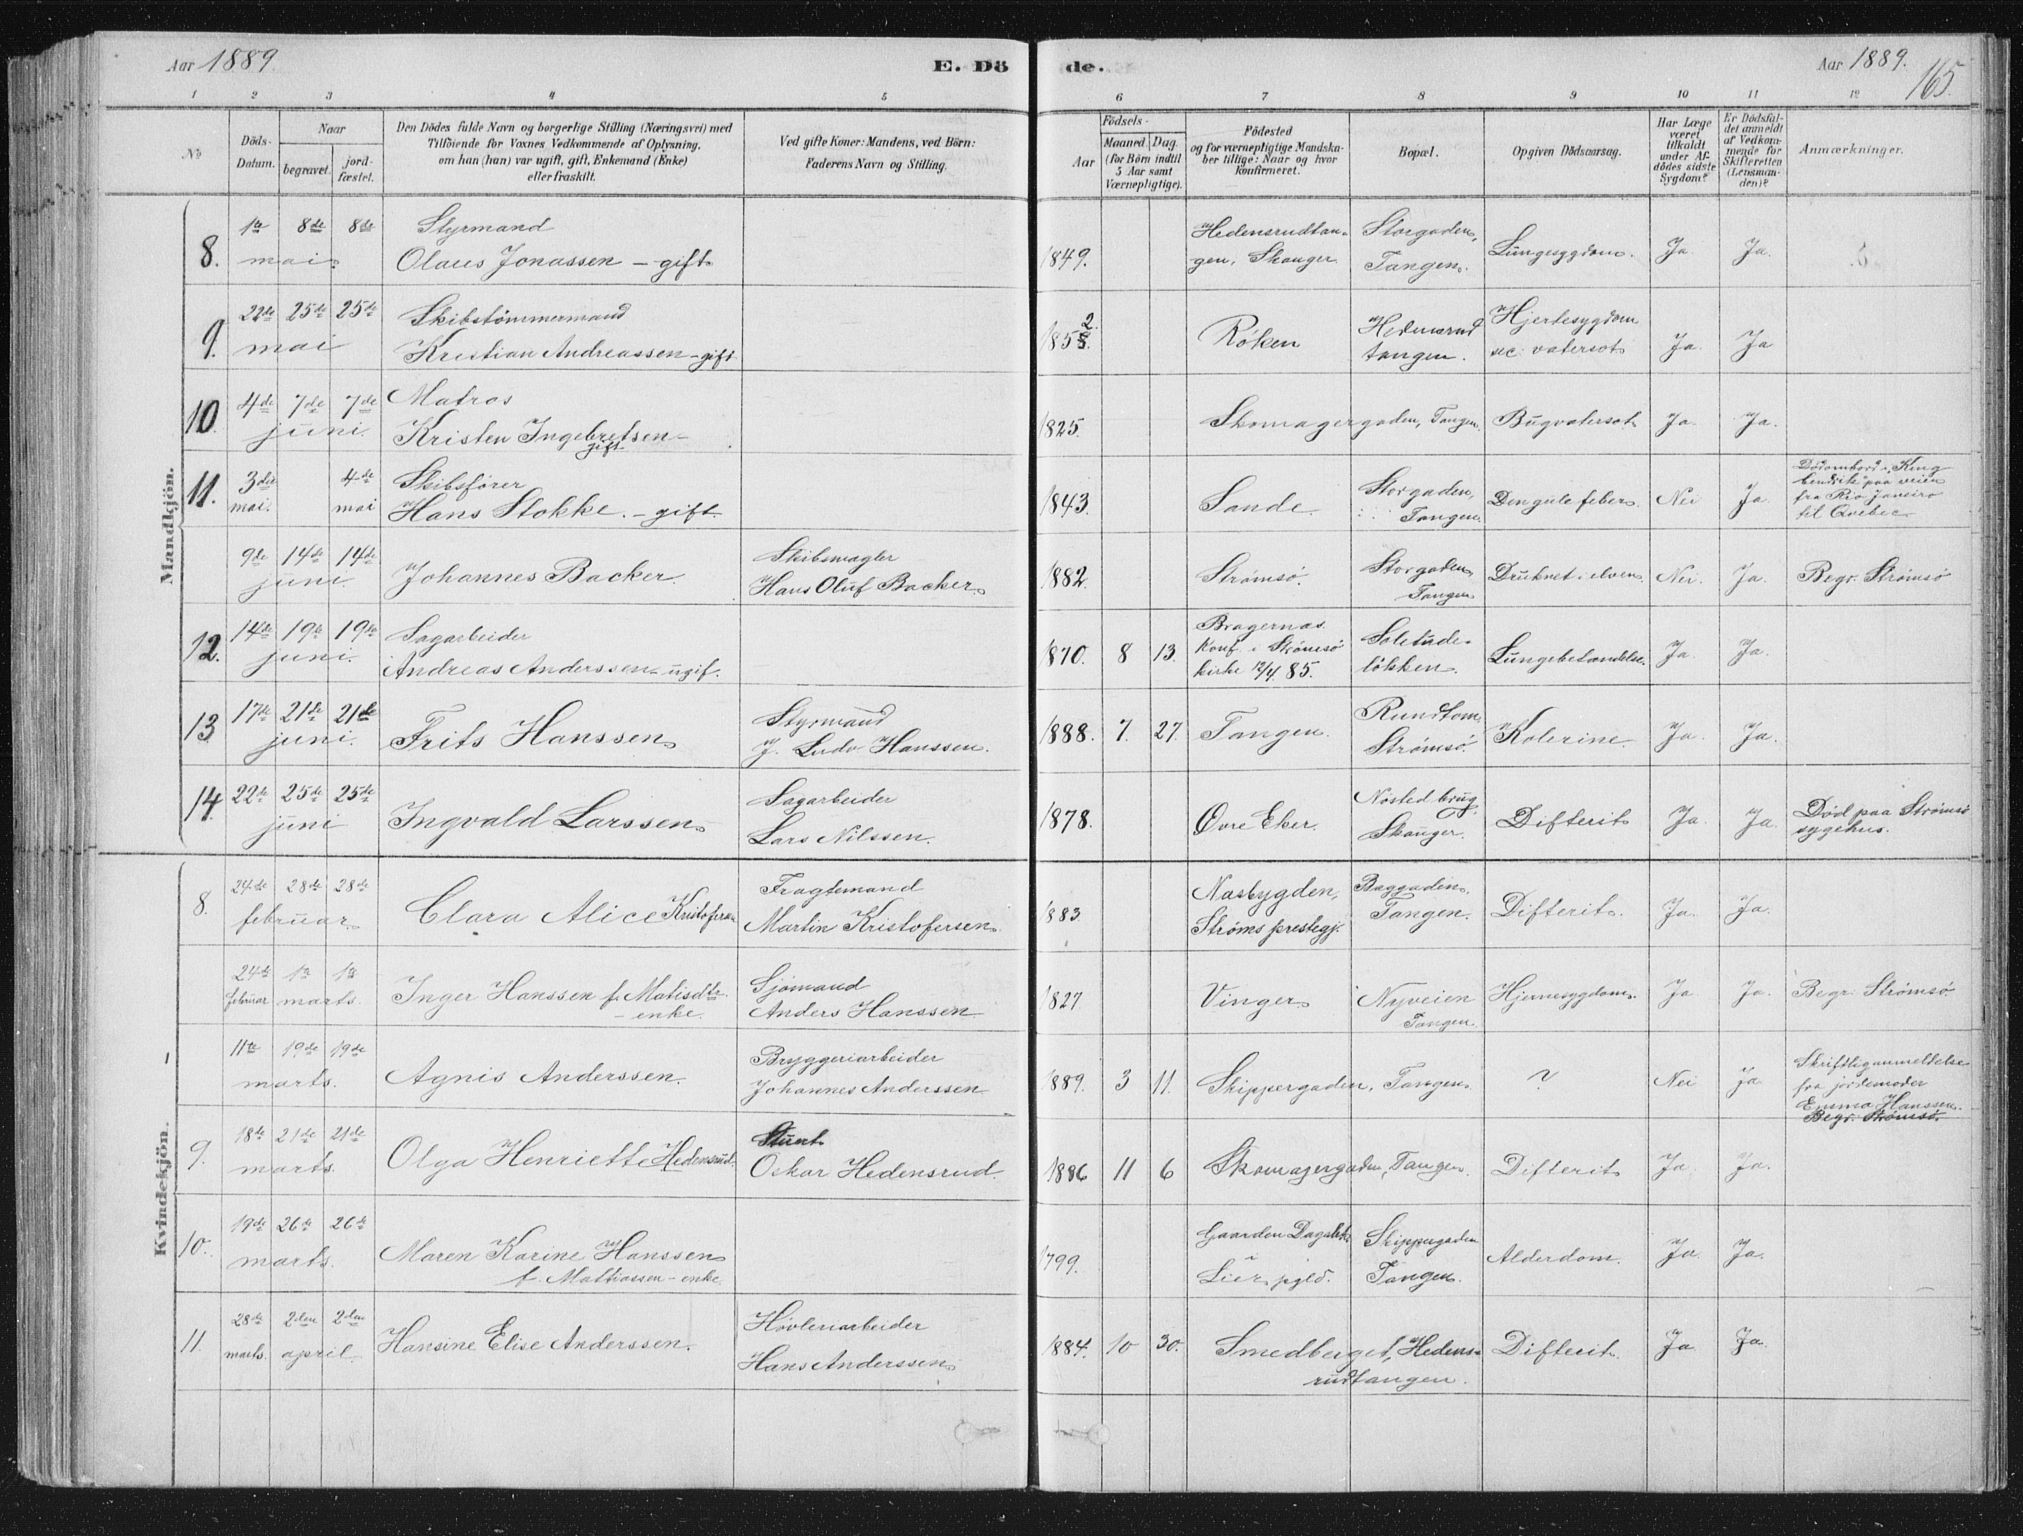 Aar 1889.
E. Dö
de.
Aar 1889.
165.
1 2 3 4 5 6 7 8 9 10 11 12
No
Döds-
Datum.
Naar
begravet.
jord-
fæstet.
Den Dödes fulde Navn og borgerlige Stilling (Næringsvei) med
Tilföiende for Voxnes Vedkommende af Oplysning,
om han (hun) var ugift, gift, Enkemand (Enke)
eller fraskilt.
Ved gifte Koner: Mandens, ved Börn:
Faderens Navn og Stilling.
Födsels-
Aar
Maaned. Dag.
(for Börn indtil
5 Aar samt
Værnepligtige).
Födested
og for værnepligtige Mandska-
ber tillige: Naar og hvor
konfirmeret.
Bopæl.
Opgiven Dödsaarsag.
Har Læge
været
tilkaldt
under Af-
dödes sidste
Sygdom?
Er Dödsfal-
det anmeldt
af Vedkom-
mende for
Skifteretten
(Lensman-
den)?
Anmærkninger.
Mandkjön.
8. 1te 8de 8de Styrmand Hedensrudtan- Storgaden,
mai. Olaus Jonassen - gift 1849. gen, Skouger Tangen. Lungesygdom. Ja Ja.
9. 22de 25de 25de Skibstömmermand 2. Hedensrud Hjertesygdom
mai Kristian Andreassen - gift 1853. Röken tangen. sec: vatersot Ja. Ja
10. 4de 7de 7de Matros
juni. Kristen Ingebretsen - 1825. Skomagergaden, Tangen. Bugvatersot Ja. Ja.
gift
11. 3die 4de Skibsförer Storgaden, Död ombord i "King
mai. mai Hans Stokke. - gift. 1843. Sande Tangen. Den gule feber. Nei Ja paa veien
fra Rio Janeiro
til Qvebec
9de 14de 14de Skibsmægler Storgaden
juni. Johannes Backer Hans Oluf Backer 1882. Strömsö. Tangen Druknet i elven Nei. Ja. Begr. Strömsö
12. 14de 19de 19de Sagarbeider Bragernæs.
juni. Andreas Anderssen - ugif. 1870. 8 13. Konf. i Strömsö Solitude-
kirke 12/4 85. lökken. Lungebetændelse. Ja. Ja.
13 17de 21de 21de Styrmand Rundtom
juni. Frits Hanssen J. Ludv. Hanssen. 1888. 7. 27. Tangen. Strömsö. Kolerine. Ja. Ja.
14. 22de 25de 25de Sagarbeider Nösted brug Död paa Strömsö
juni Ingvald Larssen Lars Nilssen. 1878. Övre Eker. Skouger. Difterit Ja. Ja. sygehus.
Kvindekjön.
8. 24de 28de 28de Fragtemand Næsbygden, Baggaden,
februar. Clara Alice Kristofersen Martin Kristofersen 1883 Ströms prestegj. Tangen. Difterit. Ja. Ja.
24de 1te 1te Sjömand
februar marts. Inger Hanssen f. Matisdtr. Anders Hanssen 1827. Vinger Nyveien Hjernesygdom. Ja Ja. Begr. Strömsö
- enke. Tangen.
11te 19de 19de Bryggeriarbeider Skriftlig anmeldelse
marts. Agnis Anderssen. Johannes Anderssen 1889. 3 11. Skippergaden, Tangen. ? Nei Ja fra jordemoder
Emma Hanssen.
Begr. Strömsö.
9. 18de 21de 21de
marts. Olga Henriette Hedensrud. Oskar Hedensrud. 1886 11 6 Skomagergaden, Tangen. Difterit Ja Ja.
10. 19de 26de 26de Gaarden Skippergaden
marts. Maren Karine Hanssen 1799. Lier pgld. Tangen. Alderdom. Ja Ja.
f. Mathiassen - enke.
11. 28de 2den 2den Hövleriarbeider
marts. april. Hansine Elise Anderssen. Hans Anderssen 1884. 10 30. Smedberget, Hedens- Difterit. Ja Ja.
rudtangen.